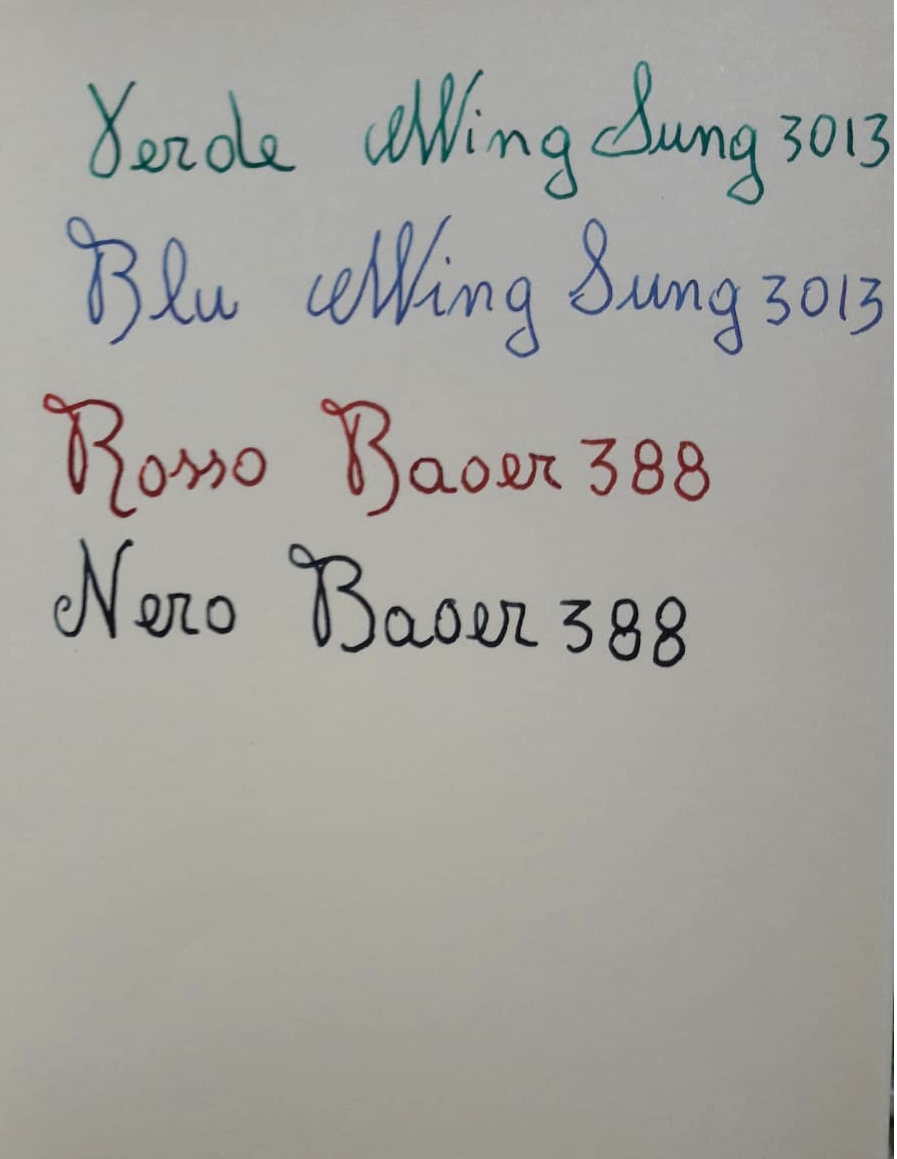 Verde Wing Sung 3013
Blu Wing Sung 3013
Rosso Baoer 388
Nero Baoer 388